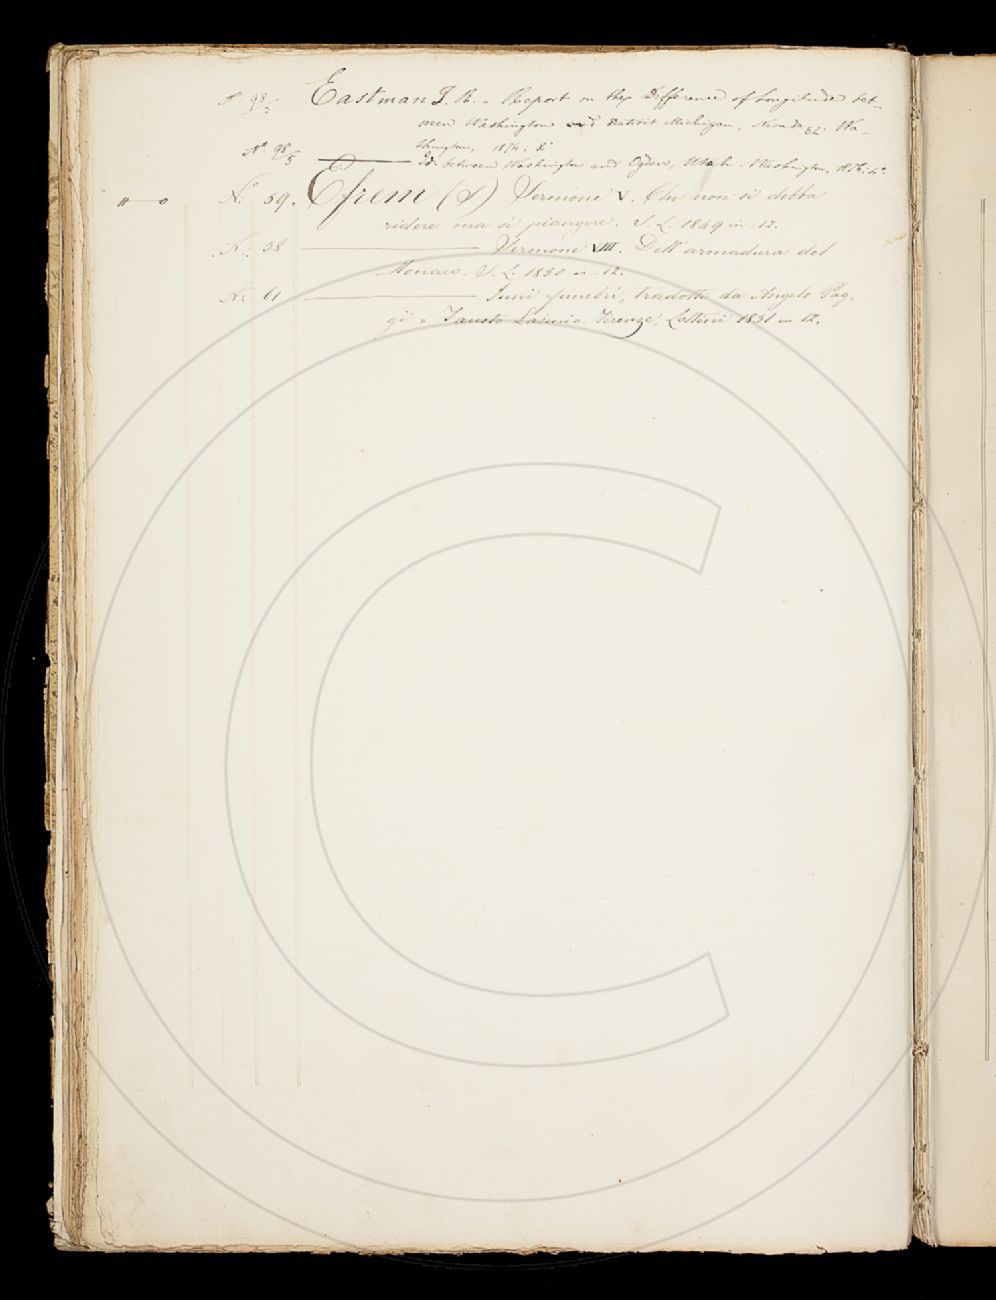 N° 98/3 Eastman J. R. - Report on the Difference of Longitude bet-
ween Washington and Detroit Michigan, Nevada &c. Wa-
shington, 1874. 4°
N° 98/5 ——— Id. between Washington and Ogden, Utah - Washington, 1876. 4°
N° 59. Efrem (S) Sermone V. Che non si debba
ridere ma si piangere. S. L. 1849 in 12.
N° 58 ——— Sermone VIII. Dell'armadura del
Monaco. S. L. 1850 in 12.
N° 61 ——— Inni funebri, tradotti da Angelo Pag-
gi e Fausto Lasinio. Firenze, 1851 in 12.